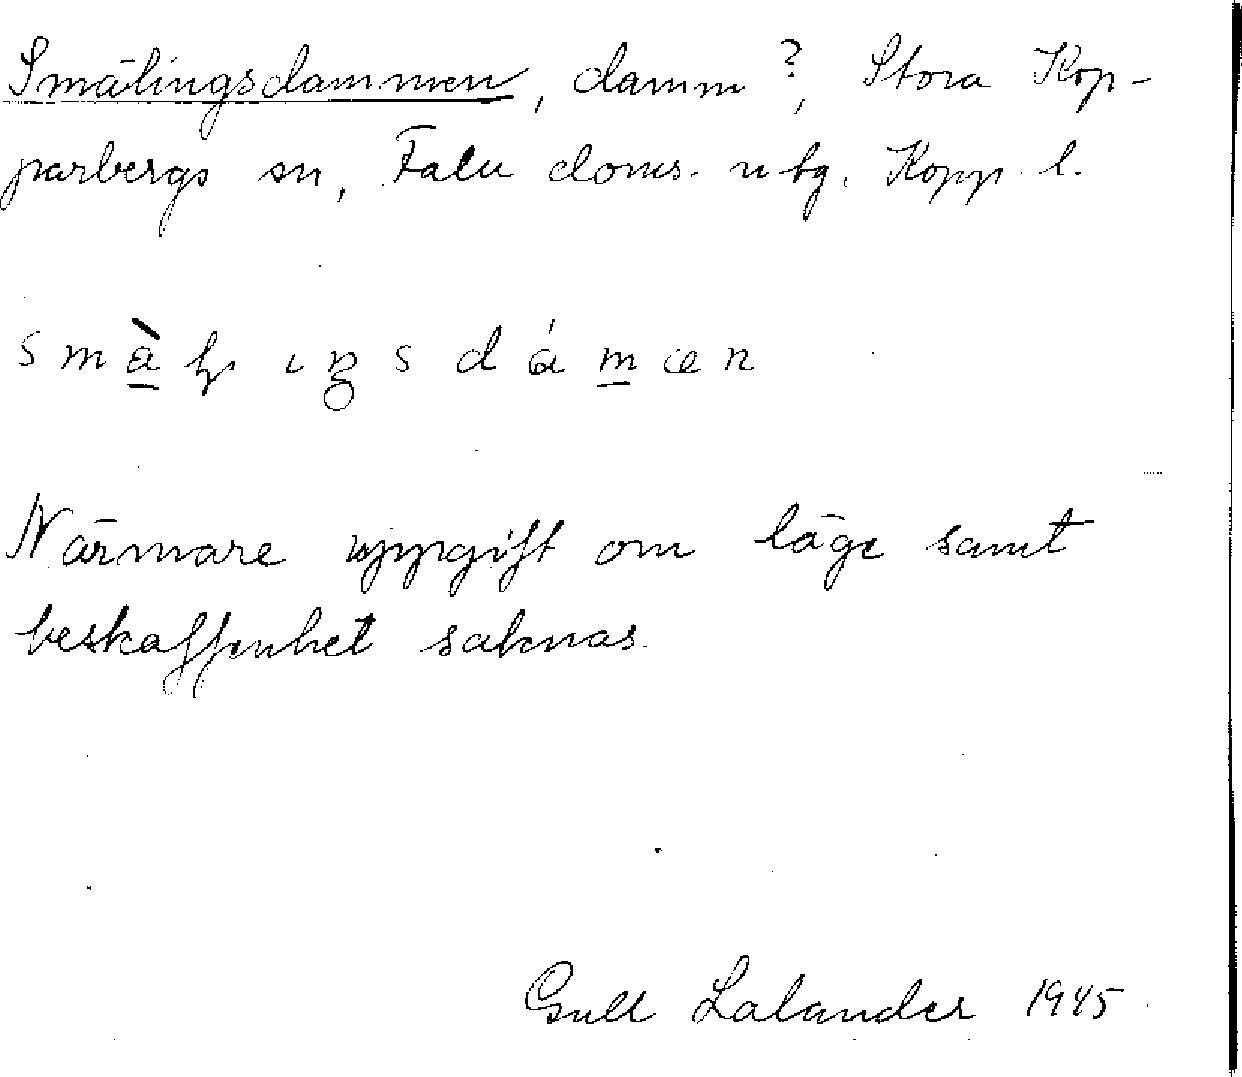 Smälingsdammen, damm?, Stora Kop-
parbergs sn, Falu doms. n tg. Kopp. l.
Närmare uppgift om läge samt
beskaffenhet saknas.
Gull Lalander 1945